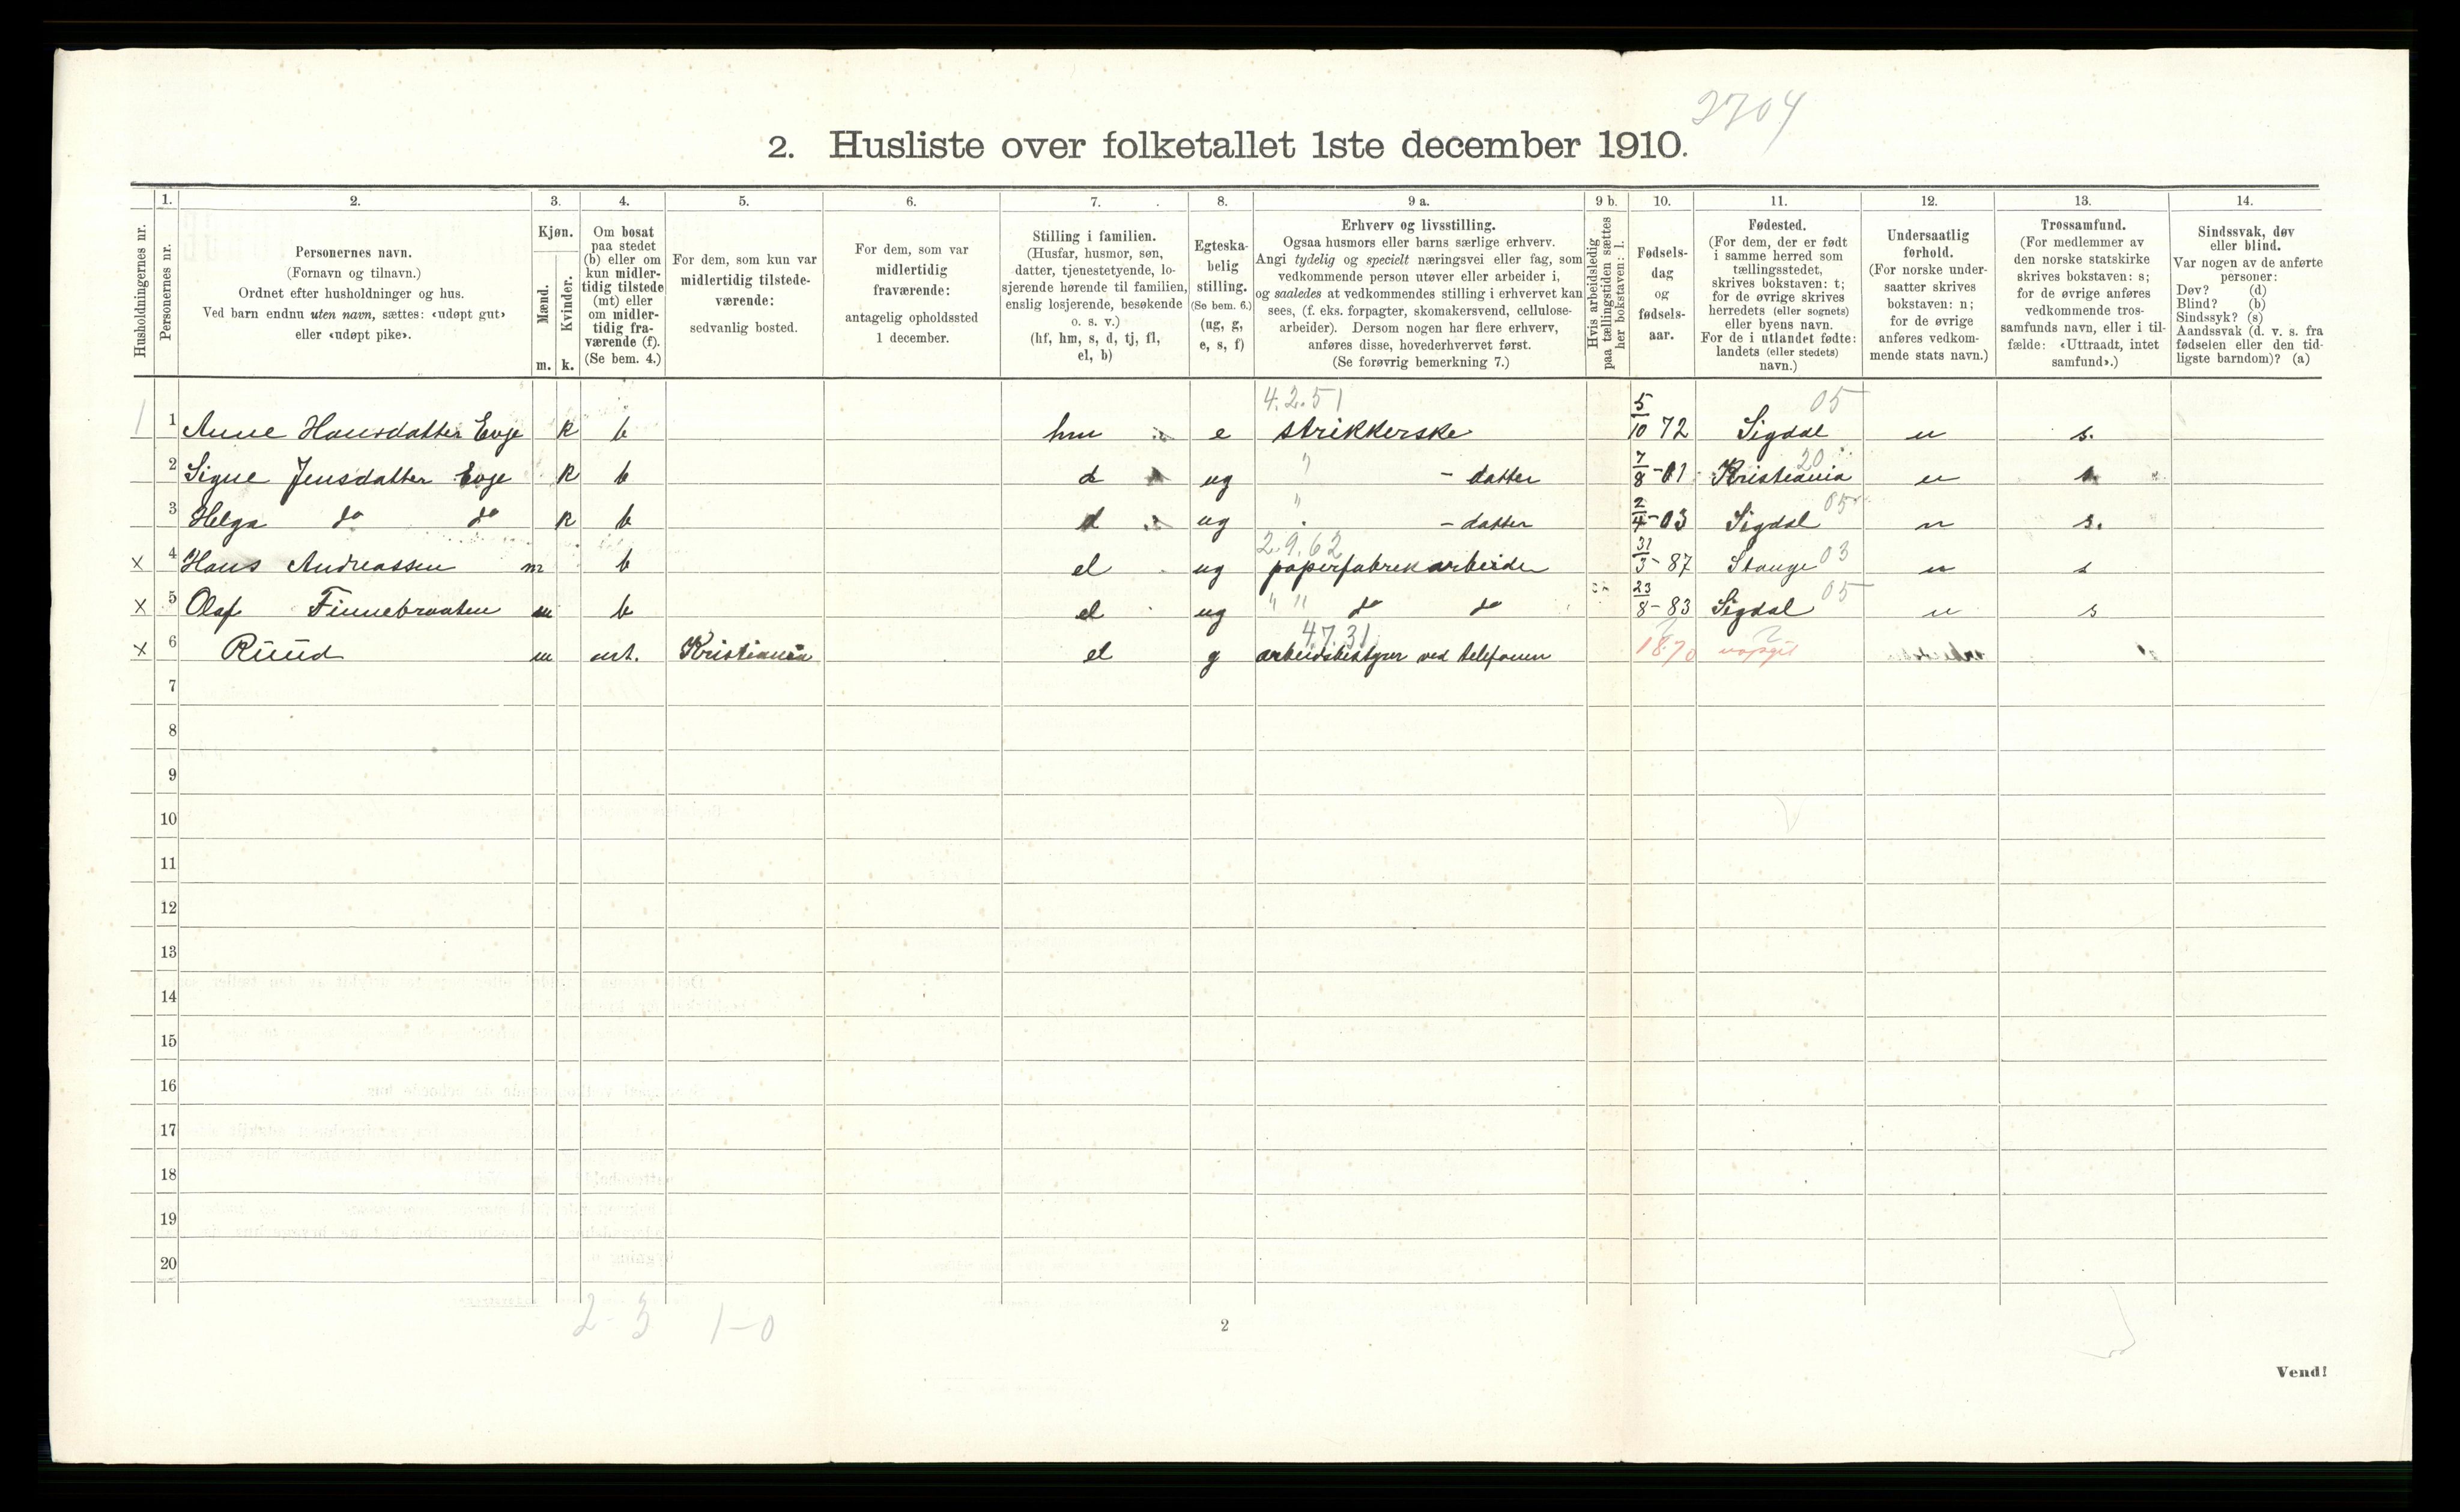 2704
2. Husliste over folketallet 1ste december 1910.
Husholdningernes nr.
1.
Personernes nr.
2.
Personernes navn.
(Fornavn og tilnavn.)
Ordnet efter husholdninger og hus.
Ved barn endnu uten navn, sættes: «udøpt gut»
eller «udøpt pike».
3.
Kjøn.
Mænd.
Kvinder.
m. k.
4.
Om bosat
paa stedet
(b) eller om
kun midler-
tidig tilstede
(mt) eller
om midler-
tidig fra-
værende (f).
(Se bem. 4.)
5.
For dem, som kun var
midlertidig tilstede-
værende:
sedvanlig bosted.
6.
For dem, som var
midlertidig
fraværende:
antagelig opholdssted
1 december.
7.
Stilling i familien.
(Husfar, husmor, søn,
datter, tjenestetyende, lo-
sjerende hørende til familien,
enslig losjerende, besøkende
o. s. v.)
(hf, hm, s, d, tj, fl,
el, b)
8.
Egteska-
belig
stilling.
(Se bem. 6.)
(ug, g,
e, s, f)
9 a.
Erhverv og livsstilling.
Ogsaa husmors eller barns særlige erhverv.
Angi tydelig og specielt næringsvei eller fag, som
vedkommende person utøver eller arbeider i,
og saaledes at vedkommendes stilling i erhvervet kan
sees, (f. eks. forpagter, skomakersvend, cellulose-
arbeider). Dersom nogen har flere erhverv,
anføres disse, hovederhvervet først.
(Se forøvrig bemerkning 7.)
9 b.
Hvis arbeidsledig
paa tællingstiden sættes
her bokstaven: l.
10.
Fødsels-
dag
og
fødsels-
aar.
11.
Fødested.
(For dem, der er født
i samme herred som
tællingsstedet,
skrives bokstaven: t;
for de øvrige skrives
herredets (eller sognets)
eller byens navn.
For de i utlandet fødte:
landets (eller stedets)
navn.)
12.
Undersaatlig
forhold.
(For norske under-
saatter skrives
bokstaven: n;
for de øvrige
anføres vedkom-
mende stats navn.)
13.
Trossamfund.
(For medlemmer av
den norske statskirke
skrives bokstaven: s;
for de øvrige anføres
vedkommende tros-
samfunds navn, eller i til-
fælde: «Uttraadt, intet
samfund».)
14.
Sindssvak, døv
eller blind.
Var nogen av de anførte
personer:
Døv? (d)
Blind? (b)
Sindssyk? (s)
Aandssvak (d. v. s. fra
fødselen eller den tid-
ligste barndom)? (a)
4.2.51 05
1 1 Anne Hansdatter Evje k b hm e strikkerske 5/10 72 Sigdal n s.
20
2 Signe Jensdatter Evje k b d ug " - datter 7/8-01 Kristiania n s
05
3 Helga do do k b d ug " - datter 2/4-03 Sigdal n s.
2.9.62
x 4 Hans Andreassen m b el ug papirfabrikarbeider 31/3-87 Stange 03 n s
x 5 Olaf Finnebraaten m b el ug " " do do 23/8-83 Sigdal 05 n s
4.7.31 ? ?
x 6 Ruud m mt. Kristiania el g arbeidsbestyrer ved telefonen 1870 uopgit
7
8
9
10
11
12
13
14
15
16
17
18
19
20
2-3 1-0
2
Vend!